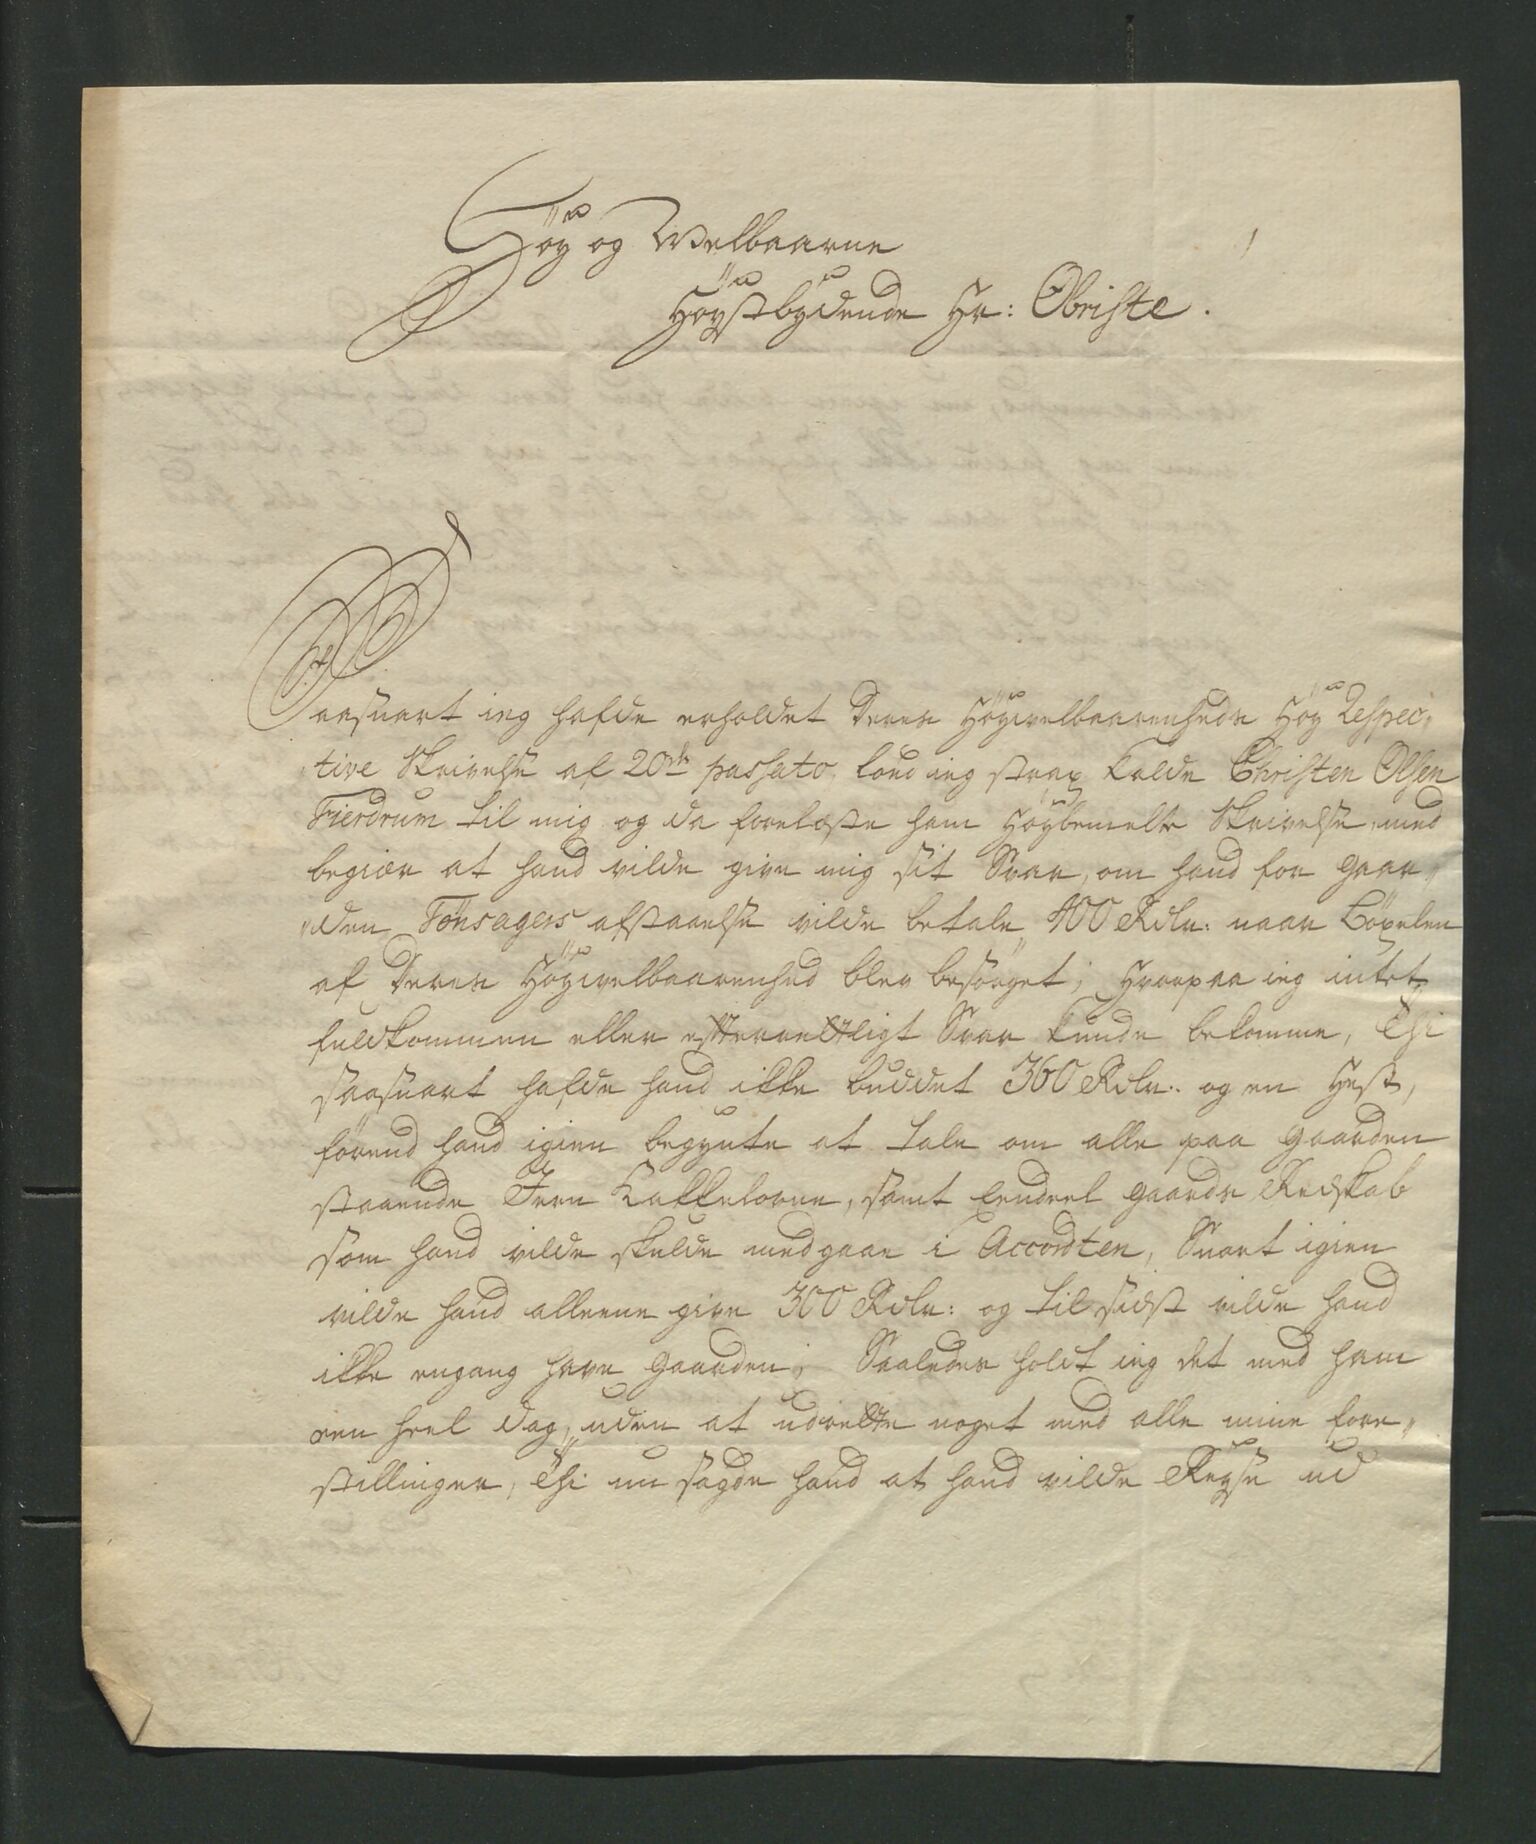 Höy og Welbaarne
Höystbydende Hr: Obriste.
Saasnart ieg hafde erholdet Deres Höywelbaarenheds Höy Respec„
„tive Skrivelse af 20de passato, loed ieg strax kalde Christen Olsen
Fierdrum til mig og da forelæste ham Höybemelte Skrivelse, med
begiær at hand vilde give mig sit Svar, om hand for gaar„
„den Tönsagers afstaaelse vilde betale 400 Rdlr: naar Böxelen
af Deres Höywelbaarenhed blev besörget; Hvorpaa ieg intet
fuldkommen eller efterretligt Svar kunde bekomme, Thi
saasnart hafde hand ikke buddet 360 Rdlr: og en Hest,
förend hand igien begynte at tale om alle paa Gaarden
staaende Jern Kakkelovne, samt Eendeel gaards Redskab
som hand vilde skulde medgaae i Accordten, Snart igien
vilde hand alleene give 300 Rdlr: og til sidst vilde hand
ikke engang have Gaarden; Saaledes holdt ieg det med ham
een heel dag, uden at udrette noget med alle mine fore„
stillinger, Thi nu sagde hand at hand vilde Reyse ud